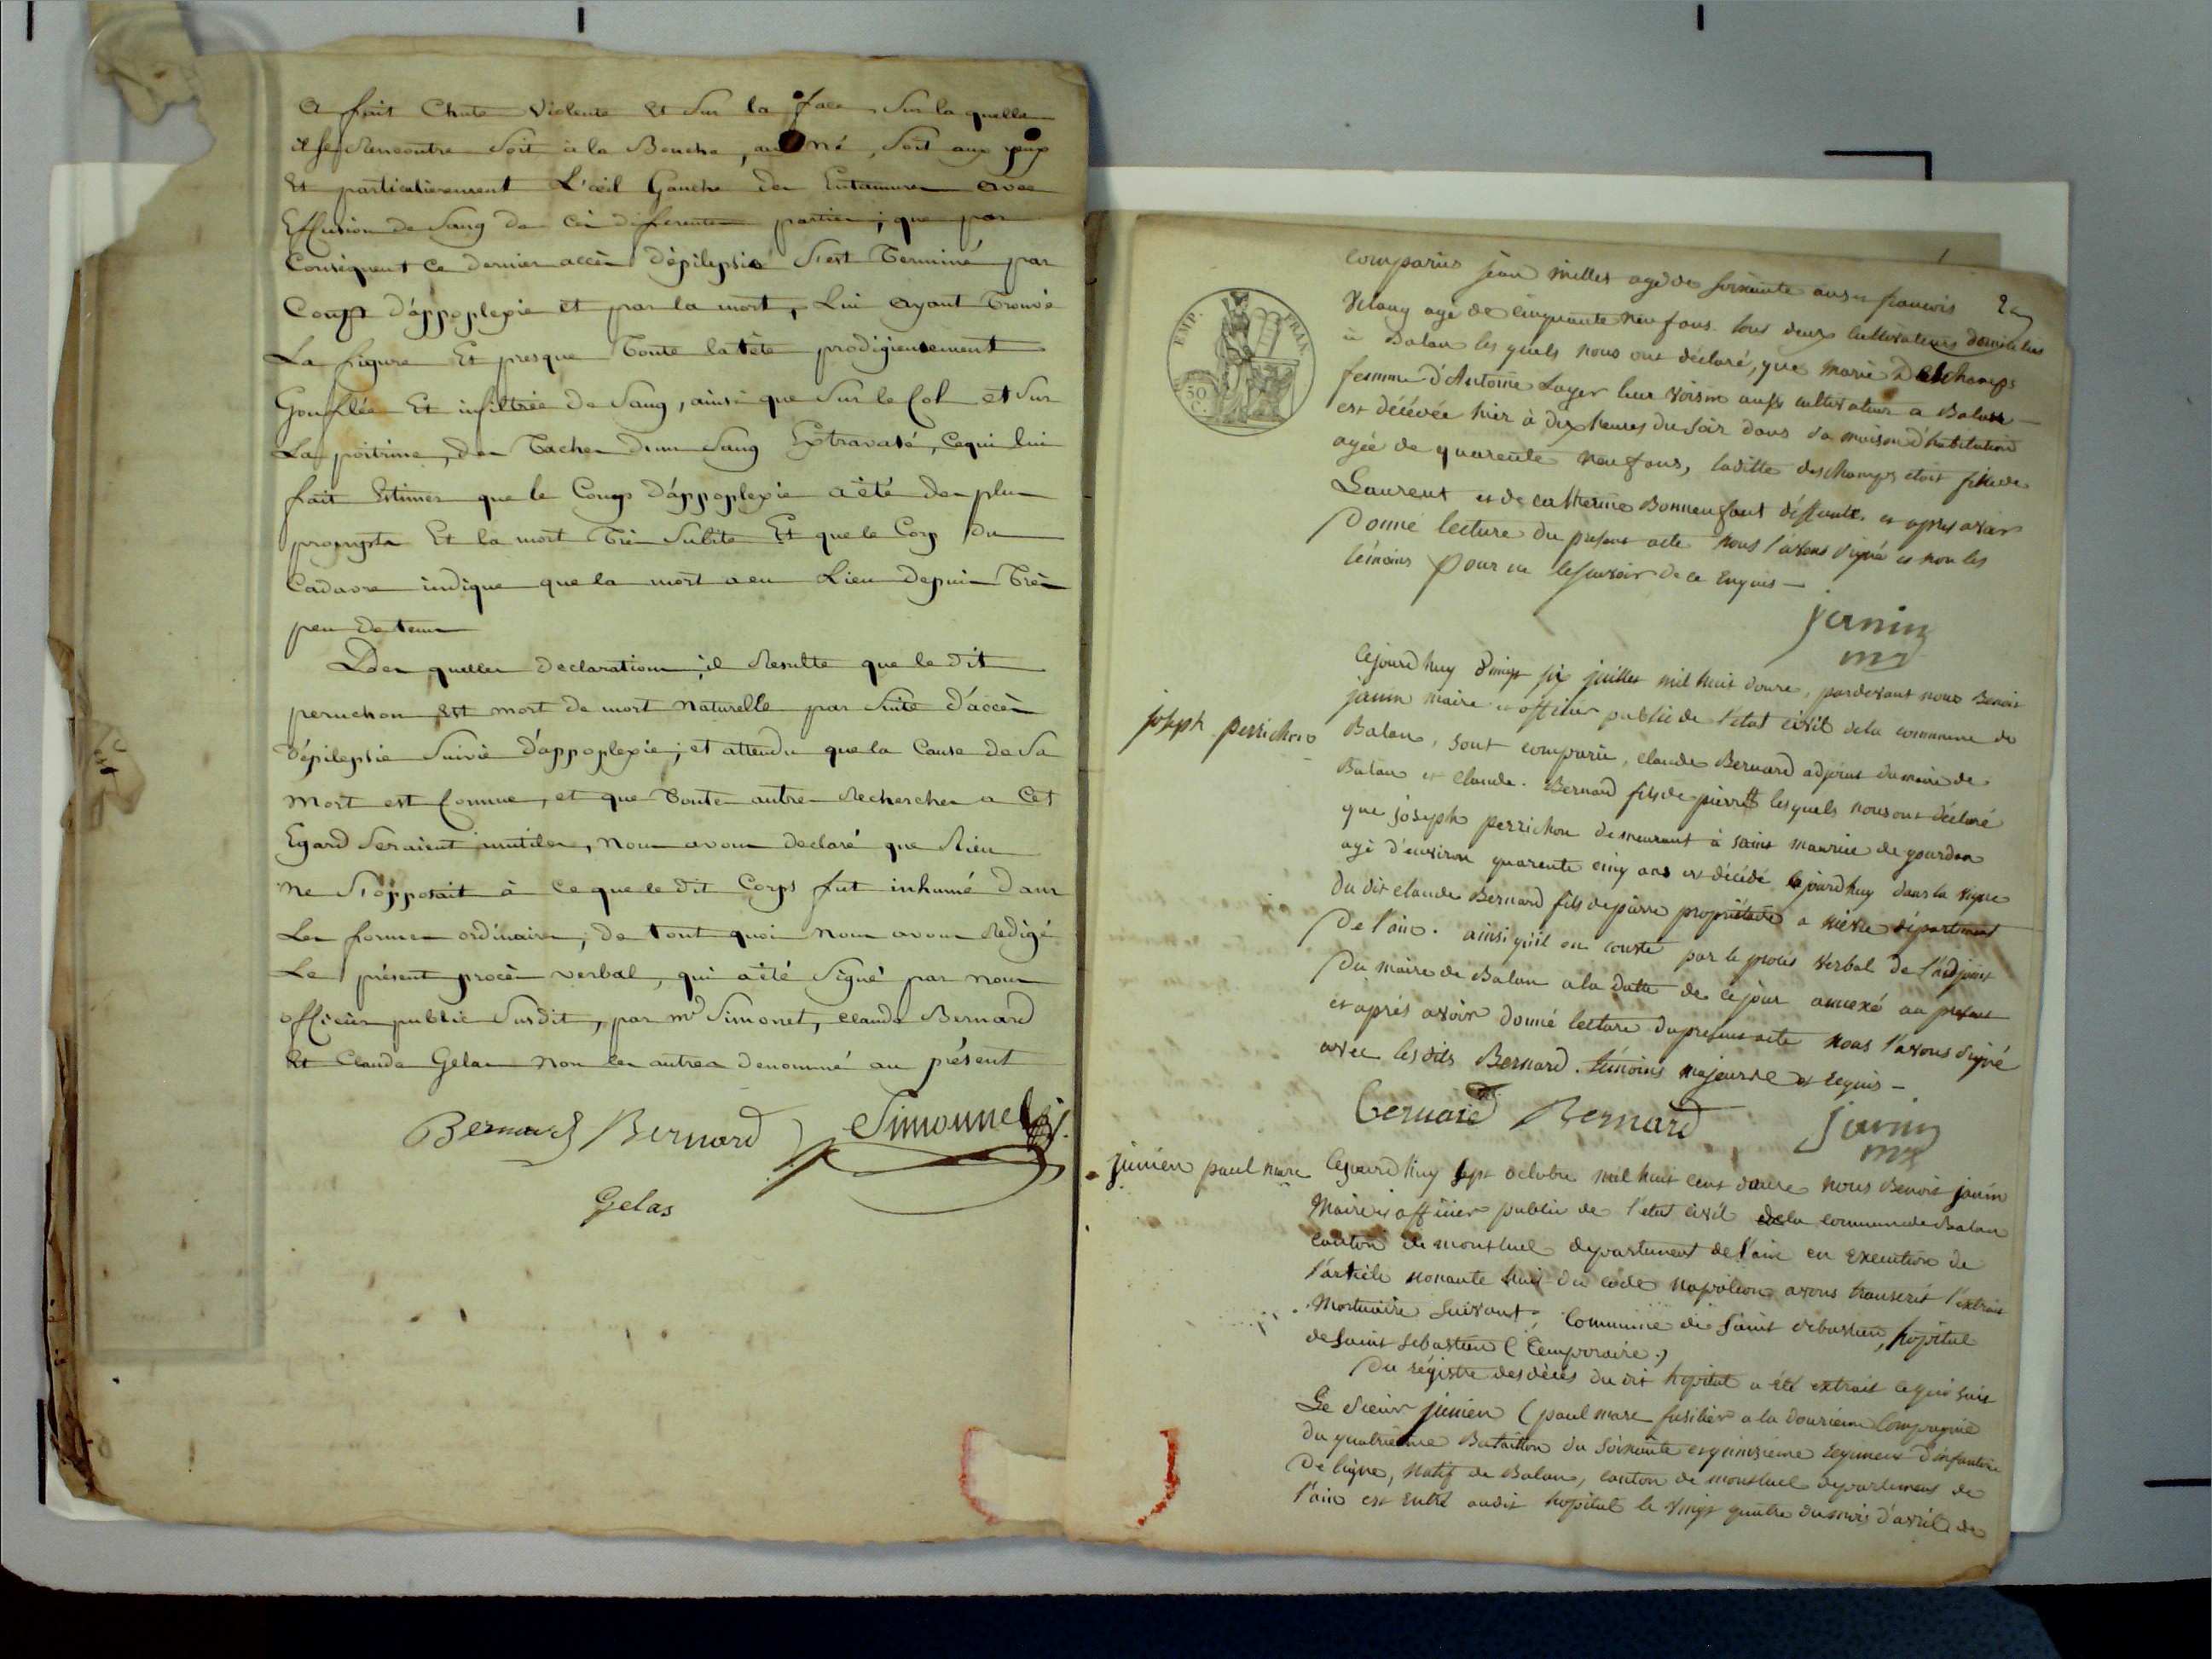 a fait Chute Violente Et Sur la face Sur la quelle
il se Rencontre Soit à la Bouche, au né, Soit aux yeux
Et particulierement L'œil Gauche des Entamures avec
Effusion de Sang de cès differentes parties; que par
Conséquent ce dernier accès d'épilepsie S'est Terminé par
Coup d'appoplexie et par la mort, Lui ayant Trouvé
La figure Et presque Toute la tête prodigieusement
Gonflée Et infiltrée de Sang, ainsi que Sur le Col et Sur
La poitrine, des Taches d'un Sang Extravasé, ce qui lui
fait Estimer que le Coup d'appoplexie a été des plus
prompts Et la mort Très Subite Et que le Corp du
Cadavre indique que la mort a eu Lieu depuis Très
peu de tems
Des quelles declarations, il Resulte que le dit
peruchon Est mort de mort naturelle par Suite d'accès
d'épilepsie Suivie d'appoplexie; et attendu que la Cause de Sa
mort est Connue, et que Toutes autres Recherches a Cet
Egard Seraient inutiles, nous avons declaré que Rien
ne S'opposait à ce que le dit Corps fut inhumé dans
Les formes ordinaires; de tout quoi nous avons Redigé
Le présent procès verbal, qui a été Signé par nous
officier public Susdit, par mr Simonet, claude Bernard
Et Claude Gelas non les autres denommé au présent
Bernard Bernard Simonnet
Gelas
EMP. FRAN.
50 C.
2
comparus jean millet agé de soixante ans et francois
Velany agé de cinquante neuf ans tous deux cultivateurs domicilies
à Balan les quels nous ont déclaré, que marie Deschamps
femme d'Antoine Layer leur voisin aussi cultivateur a Balan
est décédée hier à dix heures du soir dans sa maison d'habitation
agée de quarente neuf ans, laditte deschamps etoit fille de
Laurent et de catherine Bonnenfant déffunts. et apres avoir
Donné lecture du present acte nous l'avons signé et non les
témoins pour ne le savoir de ce Enquis
janin
mr
joseph perrichon
Cejourd'huy vingt six juillet mil huit douze, pardevant nous Benoit
janin maire et officier public de l'etat civil de la commune de
Balan, sont comparu, claude Bernard adjoint du maire de
Balan et claude Bernard fils de pierre lesquels nous ont déclaré
que joseph perrichon demeurant à saint maurice de gourdon
agé d'environ quarente cinq ans est décédé cejourdhuy dans la vigne
du dit claude Bernard fils de pierre propriétaire a nievre département
De l'ain. ainsi qu'il en conste par le procès verbal de l'adjoint
Du maire de Balan a la datte de ce jour annexé au present
et après avoir donné lecture du present acte nous l'avons signé
avec les dits Bernard témoins majeurs de ce Requis
Bernard Bernard janin
mr
junien paul marc
Cejourdhuy sept octobre mil huit cent douze nous Benoit janin
Maire et officier public de l'etat civil de la commune de Balan
canton de montluel departement de l'ain en execution de
l'article nonante huit du code napoléon avons transcrit l'extrait
Mortuaire suivant; Commune de saint sebastien, hopital
de saint sebastien (temporaire.)
Du régistre des décès du dit hopital a été extrait ce qui suit
Le sieur junien (paul marc fusilier a la douzieme Compagnie
Du quatrieme Bataillon du soixante et quinzieme regiment d'infanterie
De ligne, natif de Balan, canton de montluel departement de
l'ain est entré audit hopital le vingt quatre du mois d'avril de